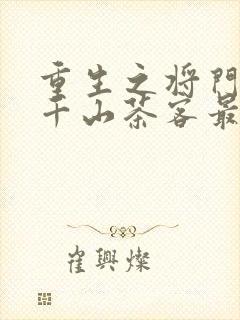 重生之将门
千山茶客最
崔興燦